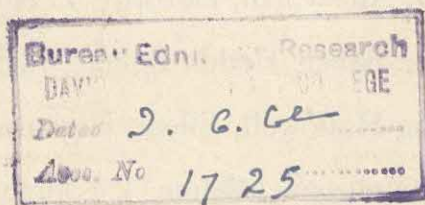 Bureau Ednl. Research
DAV EGE
Dated 2. 6. 60
Accs. No 1725